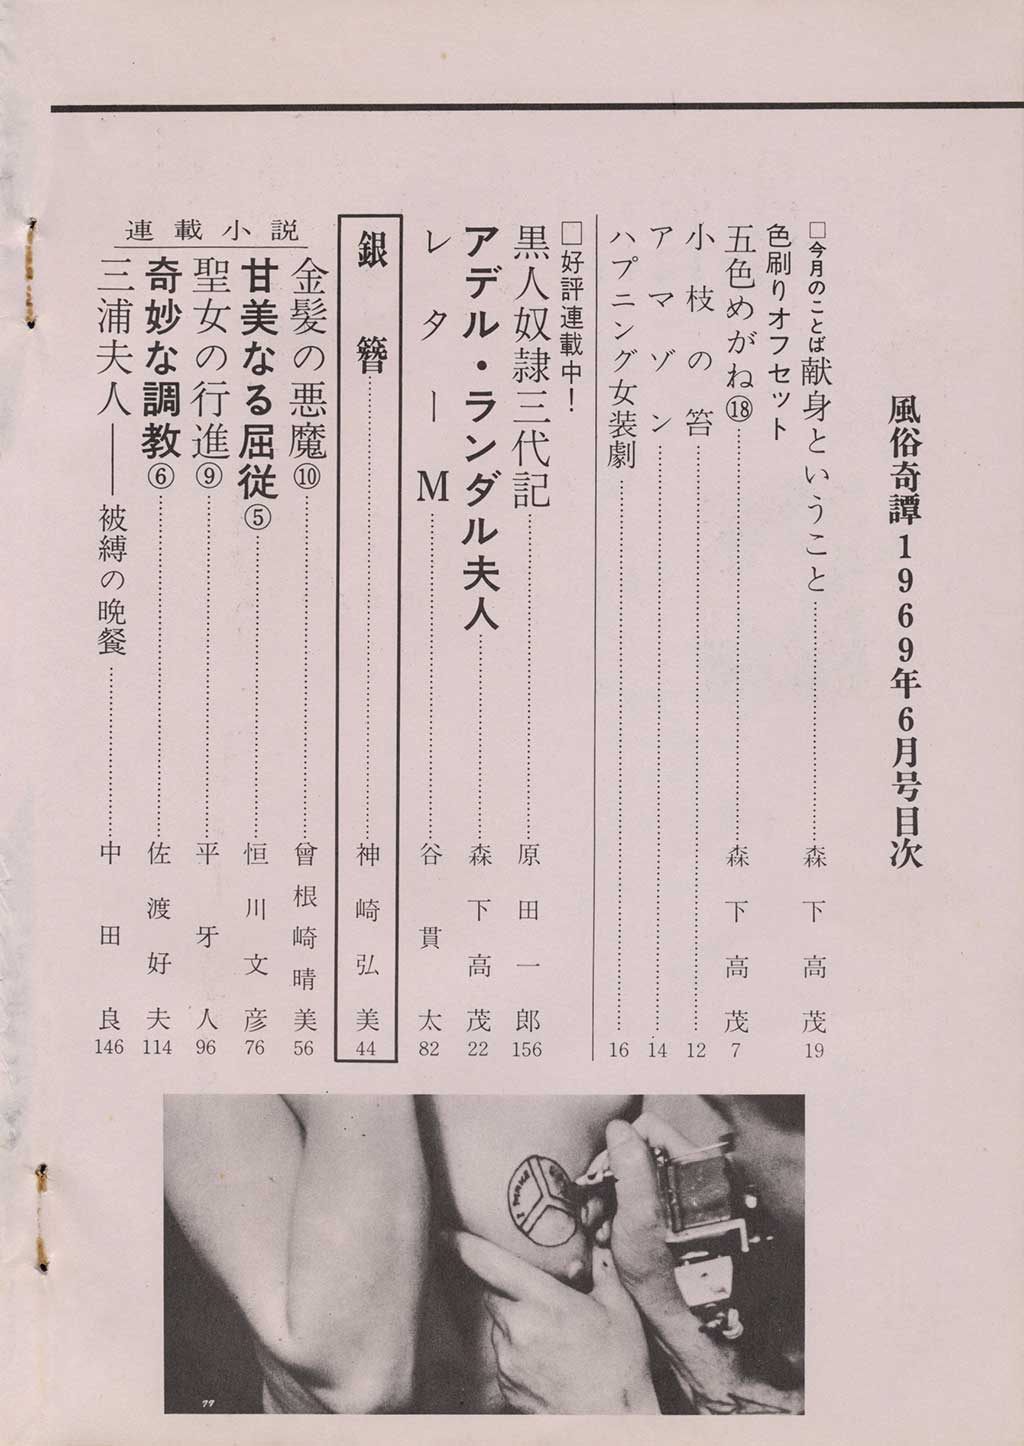 風俗奇譚1969年6月号目次
□今月のことば 献身ということ……森下高茂 19
色刷りオフセット
五色めがね⑱……森下高茂 7
小枝の笞……12
アマゾン……14
ハプニング女装劇……16
□好評連載中！
黒人奴隷三代記……原田一郎 156
アデル・ランダル夫人……森下高茂 22
レターM……谷貫太 82
銀簪……神崎弘美 44
連載小説
金髪の悪魔⑩……曾根崎晴美 56
甘美なる屈従⑤……恒川文彦 76
聖女の行進⑨……平牙人 96
奇妙な調教⑥……佐渡好夫 114
三浦夫人——被縛の晩餐……中田良 146